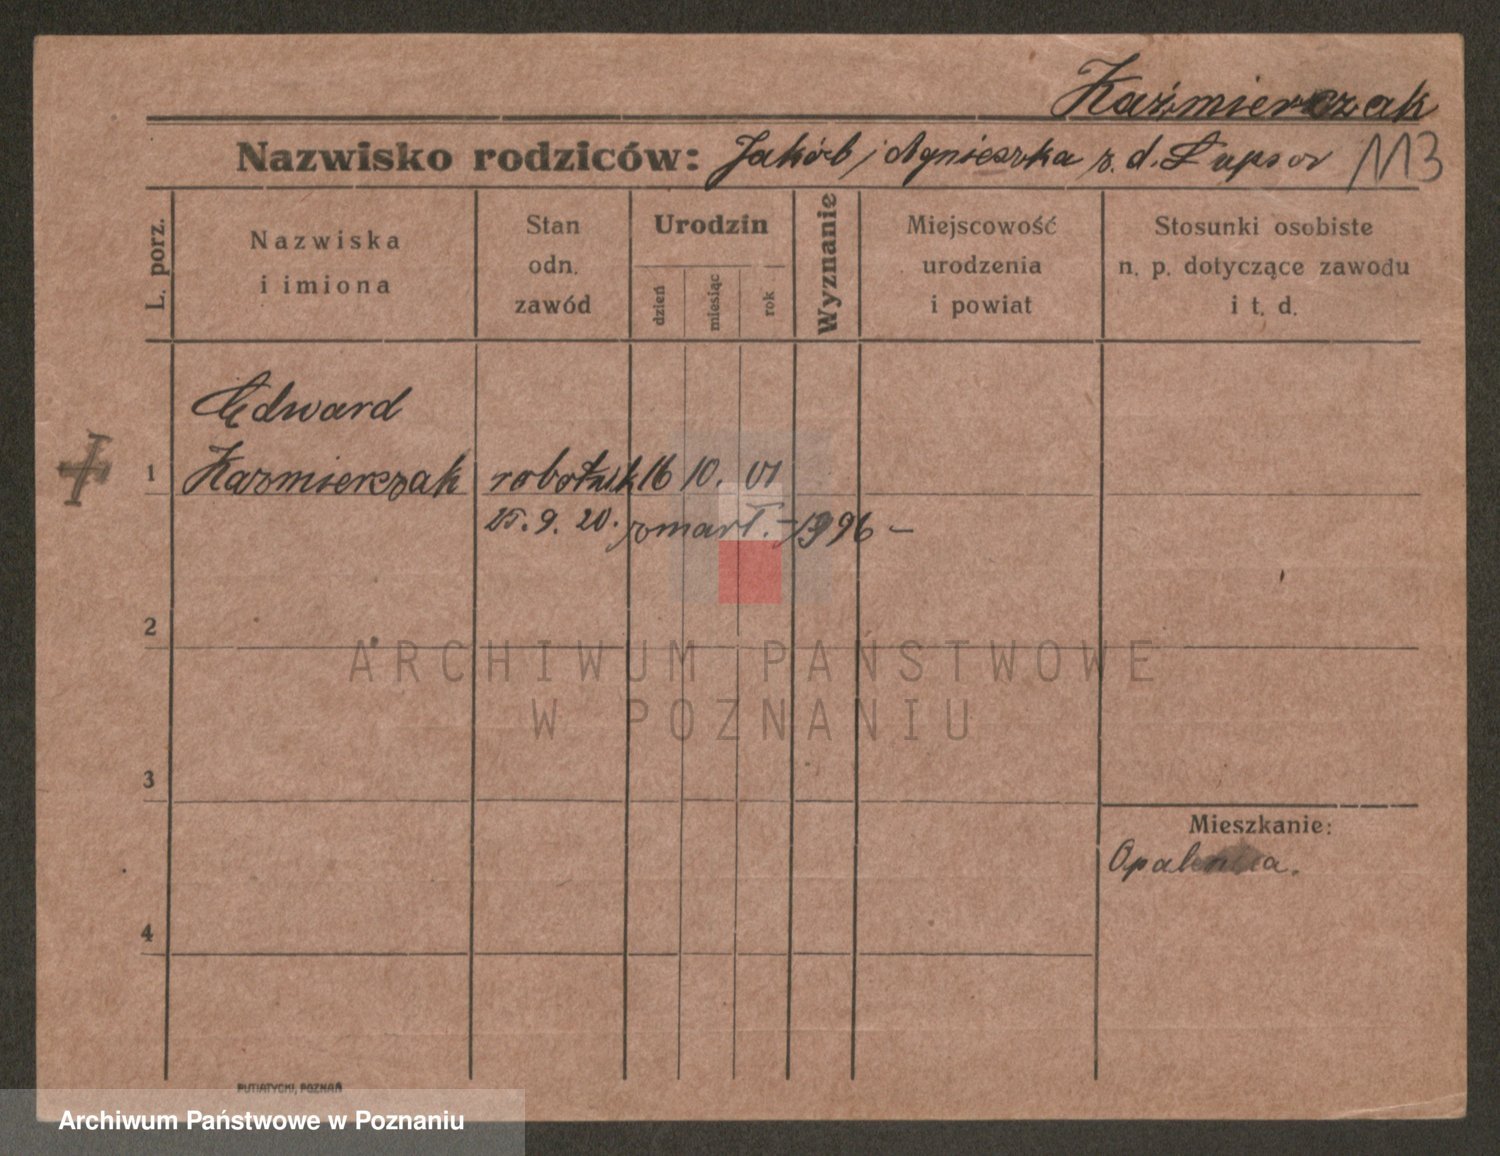 Kaźmierczak
Nazwisko rodziców: Jakób i Agnieszka z. d. Łupsor 113
L. porz.
Nazwiska
i imiona
Stan
odn.
zawód
Urodzin
dzień
miesiąc
rok
Wyznanie
Miejscowość
urodzenia
i powiat
Stosunki osobiste
n. p. dotyczące zawodu
i t. d.
Edward
1 Kazmierczak robotnik 16 10. 01
25. 9. 20. zmarł. - 1996 -
2
ARCHIWUM PAŃSTWOWE
W POZNANIU
3
Mieszkanie:
Opalenica.
4
PUTIATYCKI, POZNAŃ
Archiwum Państwowe w Poznaniu